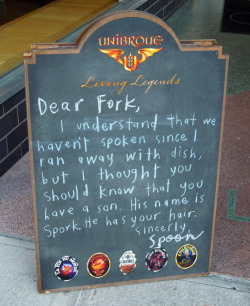 UNIBROUE
Living Legends
Dear Fork,
I understand that we
haven't spoken since I
ran away with dish,
but I thought you
should know that you
have a son. His name is
Spork. He has your hair.
Sincerly,
Spoon